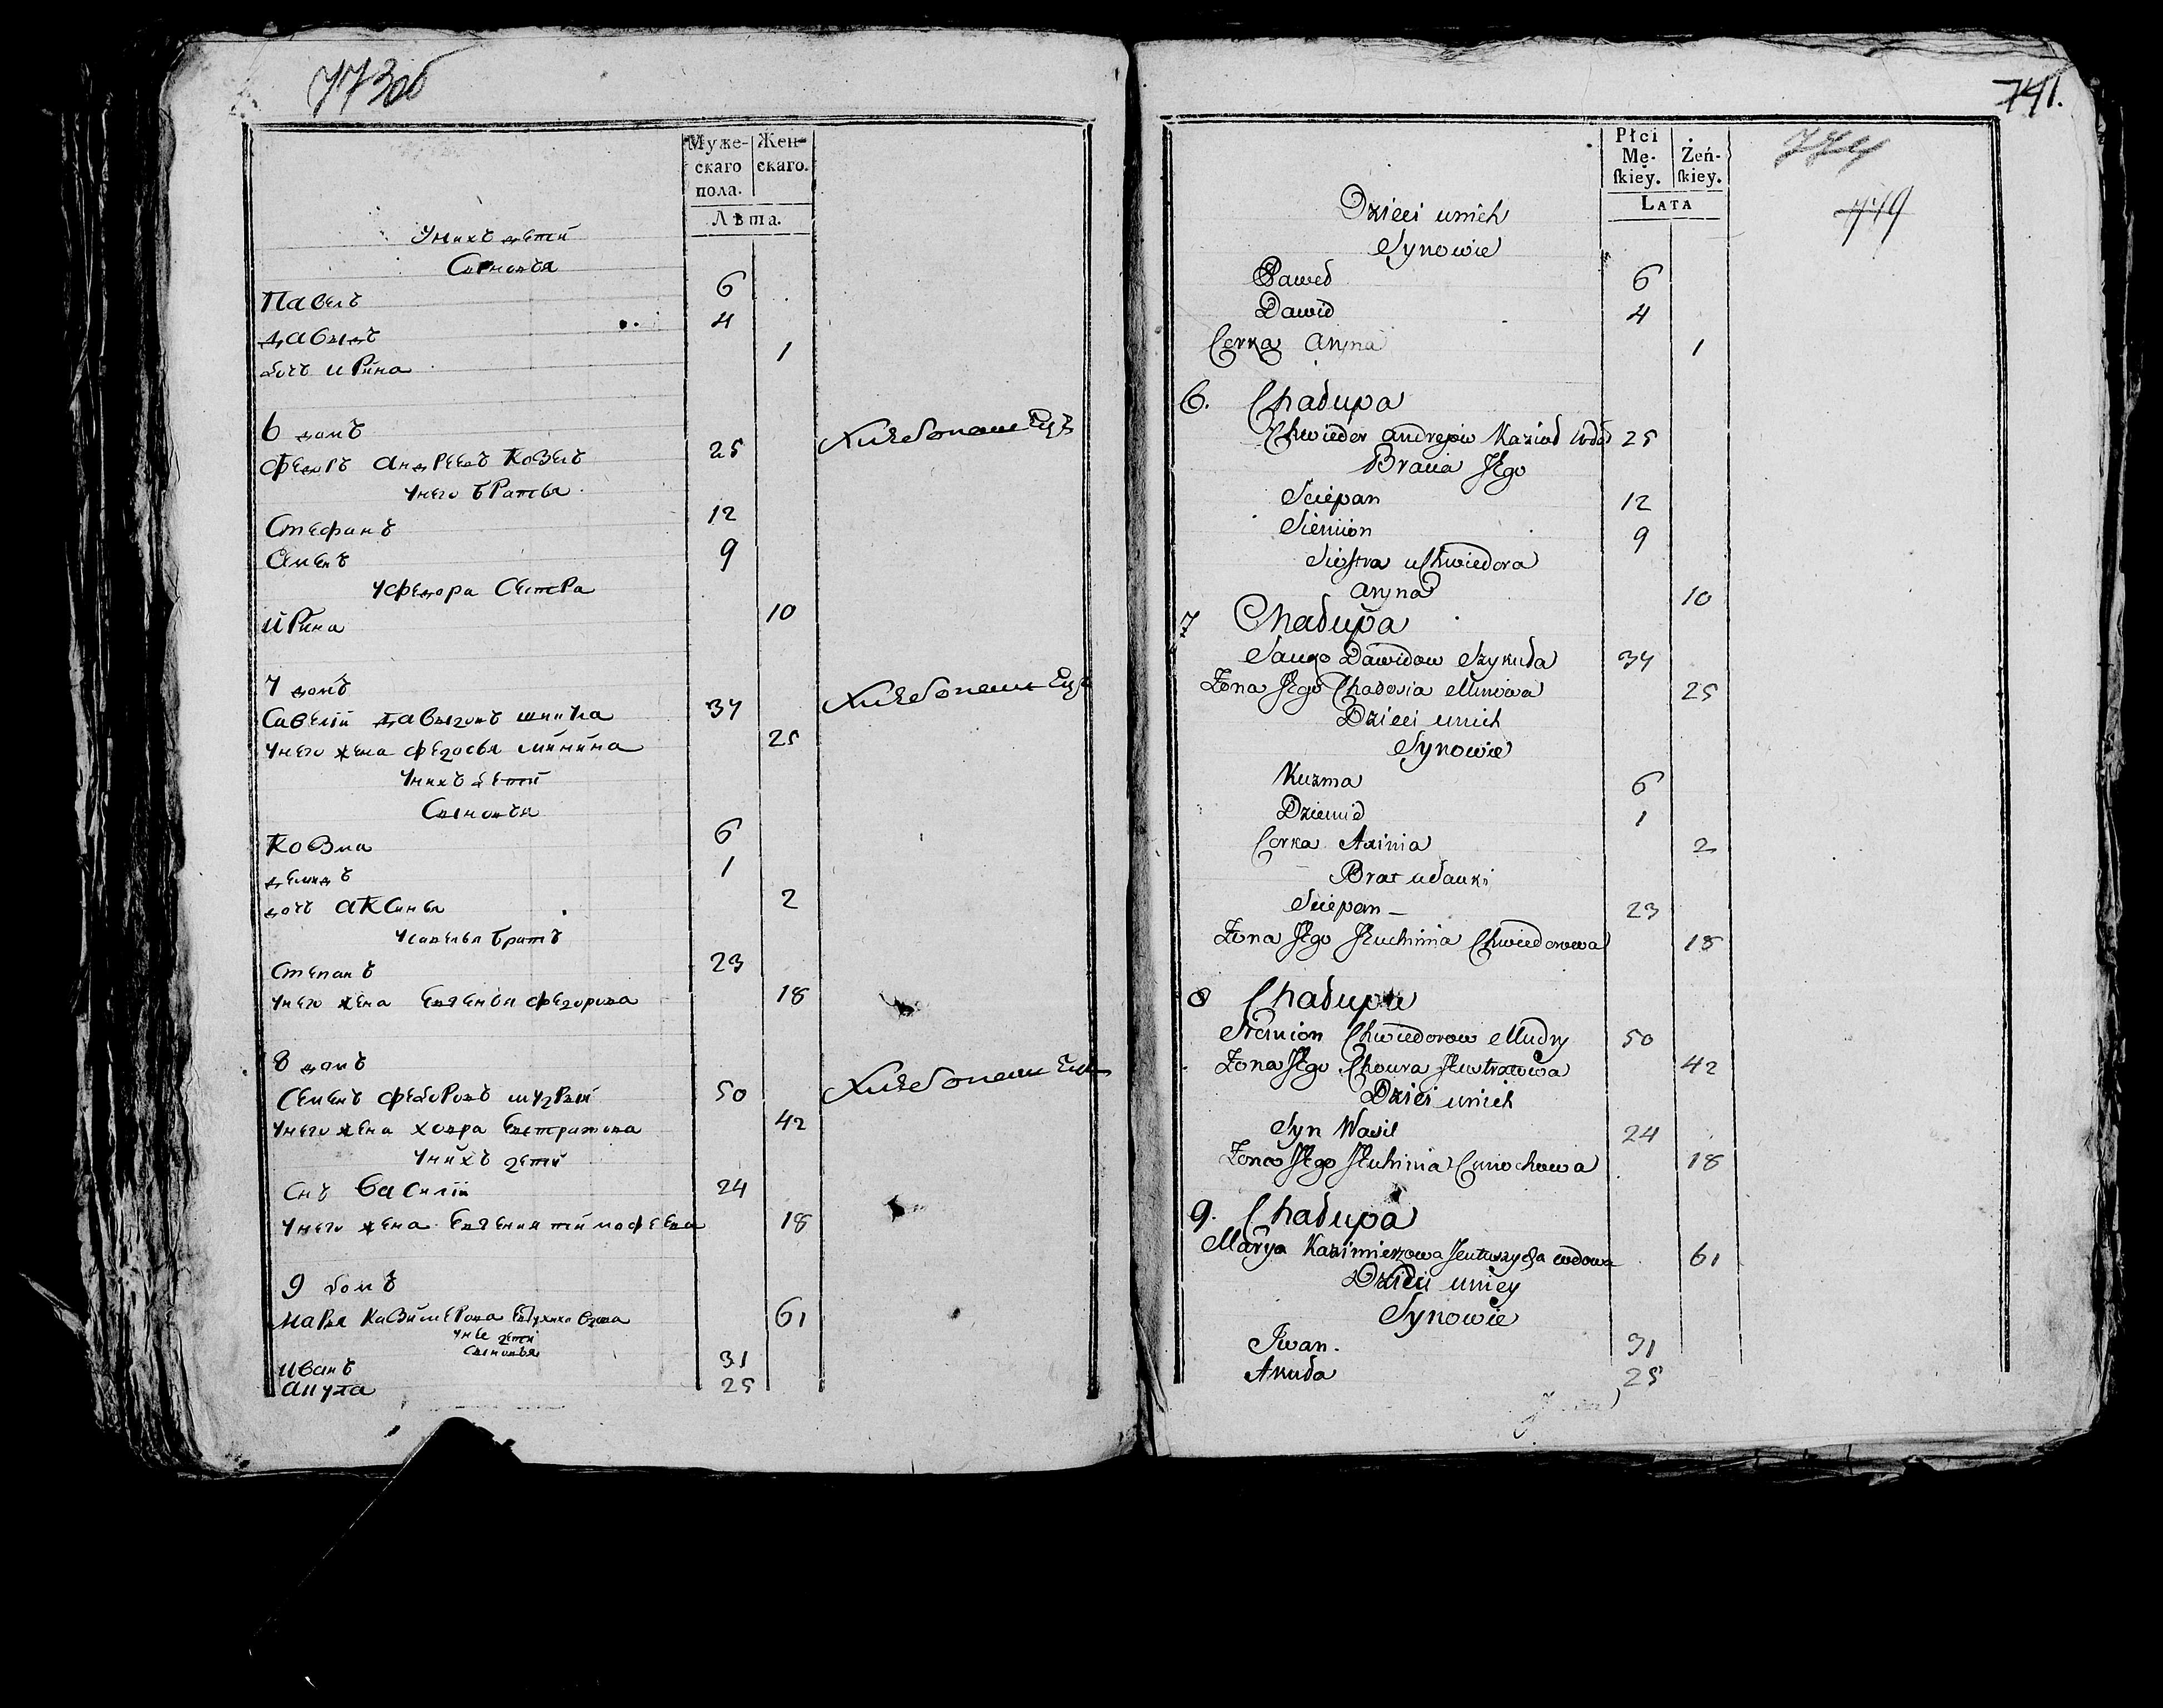 773об
Муже-
скаго
пола.
Жен-
скаго.
Лѣта.
У нихъ дети
Сыновья
Павелъ 6
Давыдъ 4
дочь ирина 1
6 домъ
Федоръ андреевъ Козелъ 25 Хлебопашецъ
у него братья
Стефанъ 12
Семенъ 9
У федора сестра
ирина 10
7 домъ
Савелiй Давыдовъ 34 Хлебопашецъ
у него жена федосья минина 25
у нихъ дети
Сыновья
Козма 6
демидъ 1
дочь аксинья 2
у савелья братъ
Степанъ 23
у него жена Евгенья федорова 18
8 домъ
Семенъ федоровъ мудрый 50 Хлебопашецъ
у него жена ховра Евстратова 42
у нихъ дети
Снъ василiй 24
у него жена Евгения тимофеева 18
9 домъ
марья казимерова вдова 61
у нее дети
сыновья
иванъ 31
акула 25
741.
774
779
Płci
Mę-
ſkiey.
Żeń-
ſkiey.
LATA
Dzieci unich
Synowie
Paweł 6
Dawid 4
Corka Aryna 1
6. Chałupa
Chwiedor Andrejow Kozioł 25
Bracia Jego
Sciepan 12
Siemion 9
Siostra u Chwiedora
Aryna 10
7 Chałupa
Sauko Dawidow Szykuła 34
Zona Jego Chadosia Minowa 25
Dzieci unich
Synowie
Kuzma 6
Dziemid 1
Corka Axinia 2
Brat u Sauki
Sciepan 23
Zona Jego Jeuhinia Chwiedorowa 18
8 Chałupa
Siemion Chwiedorow Mudry 50
Zona Jego Choura Jeustratowa 42
Dzieci unich
Syn Wasil 24
Zona Jego Jeuhinia Cimochowa 18
9. Chałupa
Marya Kazimierzowa wdowa 61
Dzieci uniey
Synowie
Iwan. 31
Akuła 25